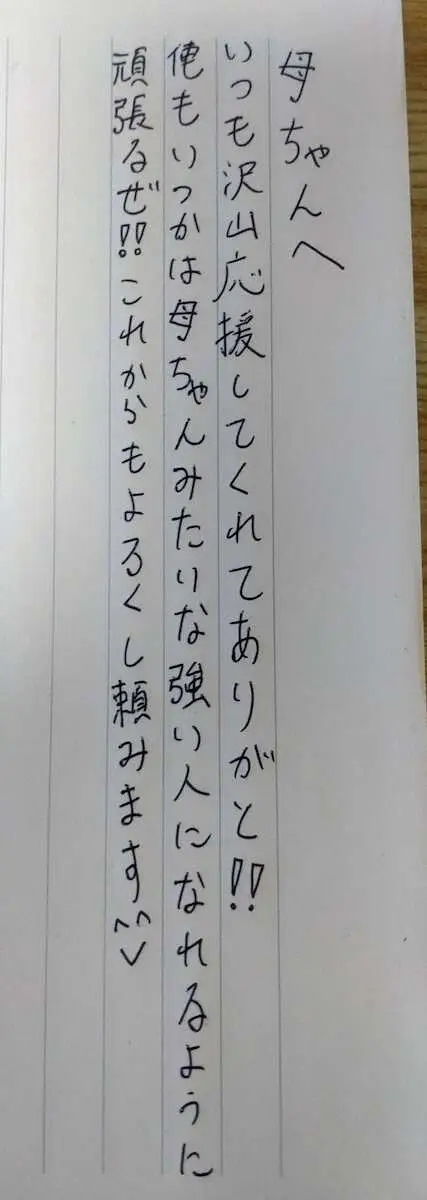 母ちゃんへ
いつも沢山応援してくれてありがと!!
俺もいつかは母ちゃんみたいな強い人になれるように
頑張るぜ!!これからもよろくし頼みます^^∨